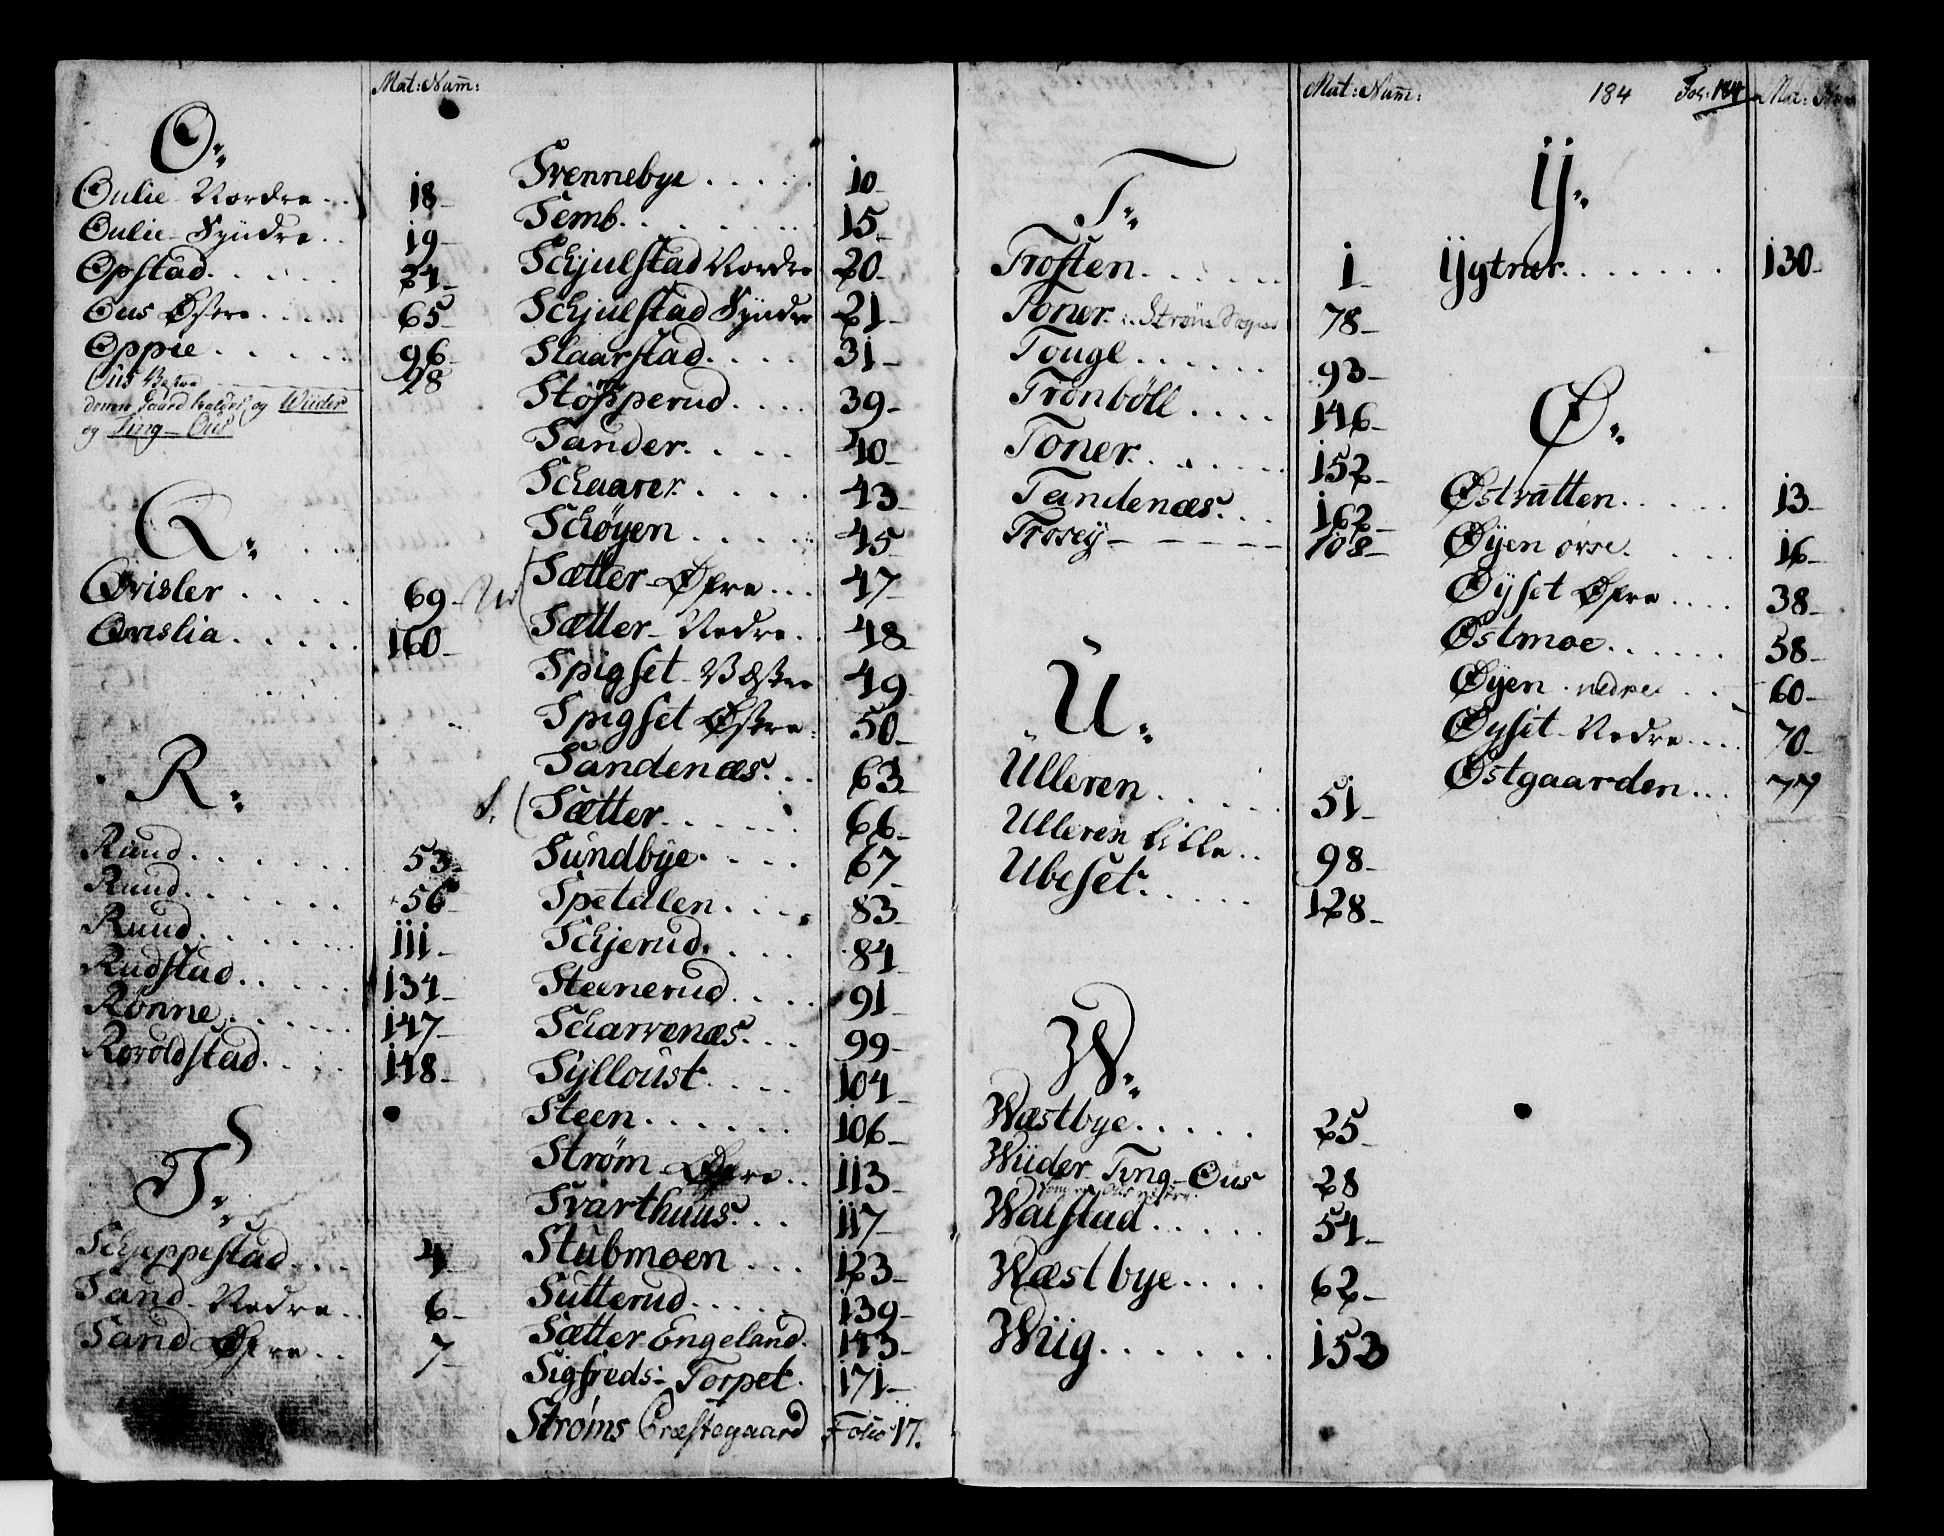 Mat: Num:
O
Oulie Nordre 18
Oulie Syndre 19
Opstad 24
Ous Østre 65
Oppie 96
Ous Vestre 28
denne Gaard kaldes og Wiider
og Ting-Ous
Q
Qvisler 69
Qvislia 160
R
Ruud 53
Ruud 56
Ruud 111
Rudstad 134
Rønne 147
Roroldstad 148
S
Schjeppestad 4
Sand Nedre 6
Sand Øfre 7
Svennebye 10
Semb 15
Schjulstad Nordre 20
Schjulstad Syndre 21
Slaarstad 31
Stöpperud 39
Sander 40
Schaarer 43
Schøyen 45
Sætter Øfre 47
Sætter Nedre 48
Spigset Væstre 49
Spigset Østre 50
Sandenæs 63
S. Sætter 66
Sundbye 67
Spetalen 83
Schjerud 84
Steenerud 91
Scharvenæs 99
Sylloust 104
Steen 106
Strøm Øfre 113
Svarthuus 117
Stubmoen 123
Sutterud 139
Sætter Engeland 143
Sigfreds: Torpet 171
Strøms Præstegaard Folio 17.
Mat: Num:
T
Trosten 1
Toner Strøms Sogn 78
Tougl 93
Tronböll 146
Toner 152
Tandenæs 162
Trosey 108
U
Ulleren 51
Ulleren Lille 98
Ubeset 128
W
Wæstbye 25
Wiider Ting-Ous 28
Walstad 54
Wæstbye 62
Wiig 153
184 Fol: 184 Mat: Num
Y
Ygtner 130
Ø
Østvatten 13
Øyen øvre 16
Øyset Øfre 38
Østmoe 58
Øyen nedre 60
Øyset Nedre 70
Østgaarden 77